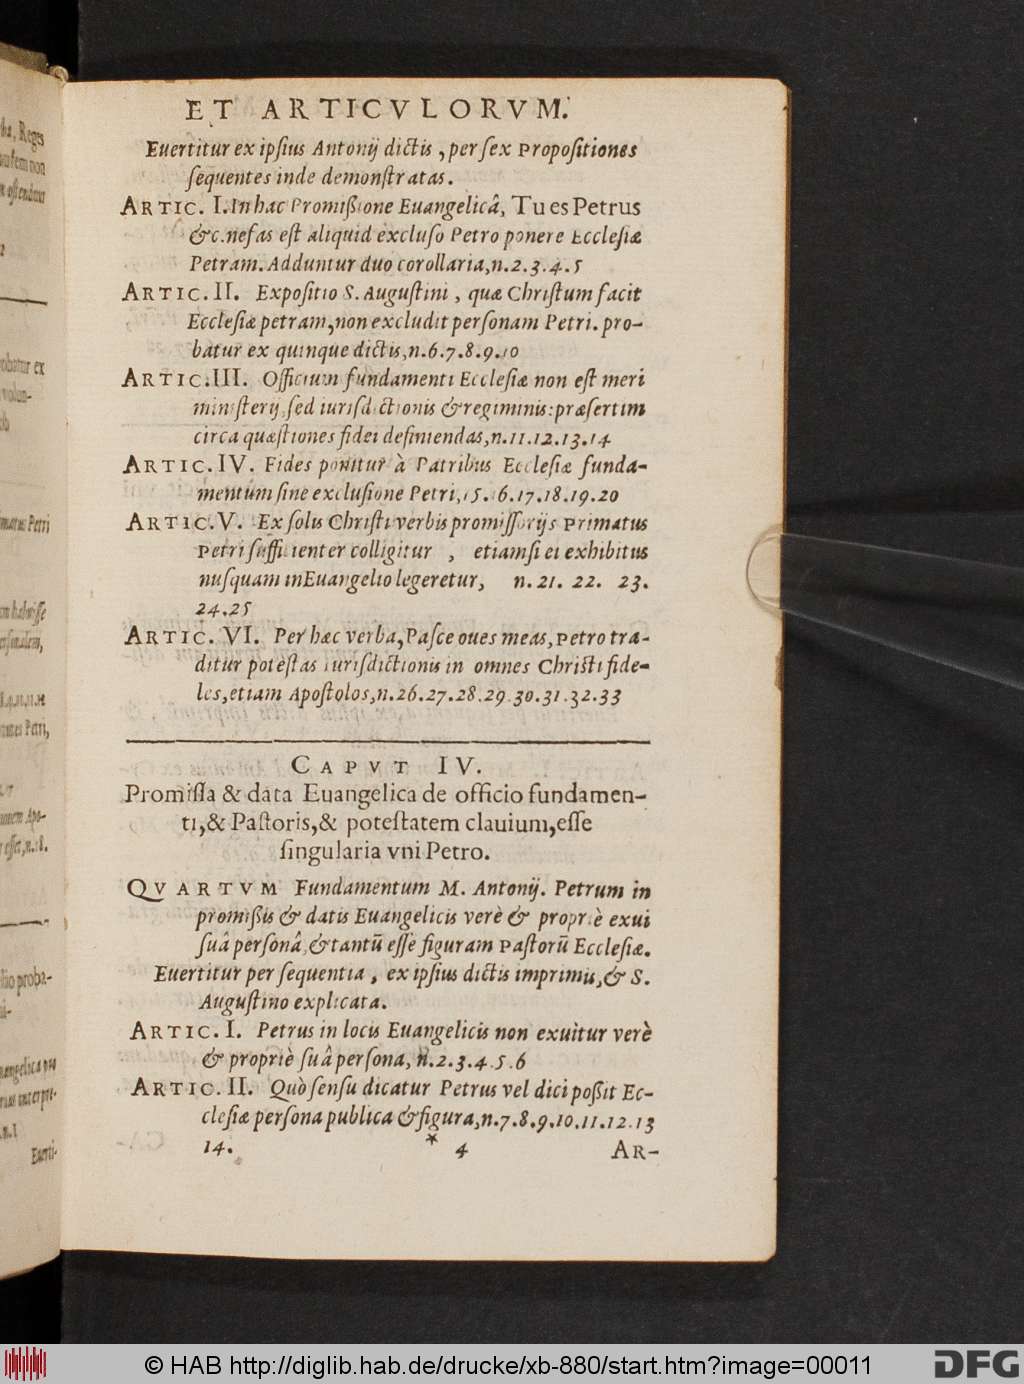 ET ARTICVLORVM.
Euertitur ex ipſius Antonij dictis, per ſex Propoſitiones
ſequentes inde demonſtratas.
ARTIC. I. In hac Promiſſione Euangelicâ, Tu es Petrus
&c. nefas eſt aliquid excluſo Petro ponere Eccleſiæ
Petram. Adduntur duo corollaria, n.2.3.4.5
ARTIC. II. Expoſitio S. Auguſtini, quæ Chriſtum facit
Eccleſiæ petram, non excludit perſonam Petri. pro-
batur ex quinque dictis, n.6.7.8.9.10
ARTIC. III. Officium fundamenti Eccleſiæ non eſt meri
miniſterij, ſed iuriſdictionis & regiminis: præſertim
circa quæſtiones fidei definiendas, n.11.12.13.14
ARTIC. IV. Fides ponitur à Patribus Eccleſiæ funda-
mentum ſine excluſione Petri, 15.16.17.18.19.20
ARTIC. V. Ex ſolis Chriſti verbis promiſſorijs Primatus
Petri ſufficienter colligitur, etiamſi ei exhibitus
nuſquam in Euangelio legeretur, n. 21. 22. 23.
24.25
ARTIC. VI. Per hæc verba, Paſce oues meas, Petro tra-
ditur poteſtas iuriſdictionis in omnes Chriſti fide-
les, etiam Apoſtolos, n.26.27.28.29.30.31.32.33
CAPVT IV.
Promiſſa & data Euangelica de officio fundamen-
ti, & Paſtoris, & poteſtatem clauium, eſſe
ſingularia vni Petro.
QVARTVM Fundamentum M. Antonij. Petrum in
promiſſis & datis Euangelicis verè & propriè exui
ſuâ perſonâ, & tantū eſſe figuram Paſtorū Eccleſiæ.
Euertitur per ſequentia, ex ipſius dictis imprimis, & S.
Auguſtino explicata.
ARTIC. I. Petrus in locis Euangelicis non exuitur verè
& propriè ſuâ perſona, n.2.3.4.5.6
ARTIC. II. Quò ſenſu dicatur Petrus vel dici poſſit Ec-
cleſiæ perſona publica & figura, n.7.8.9.10.11.12.13
14. * 4 AR-
© HAB http://diglib.hab.de/drucke/xb-880/start.htm?image=00011
DFG